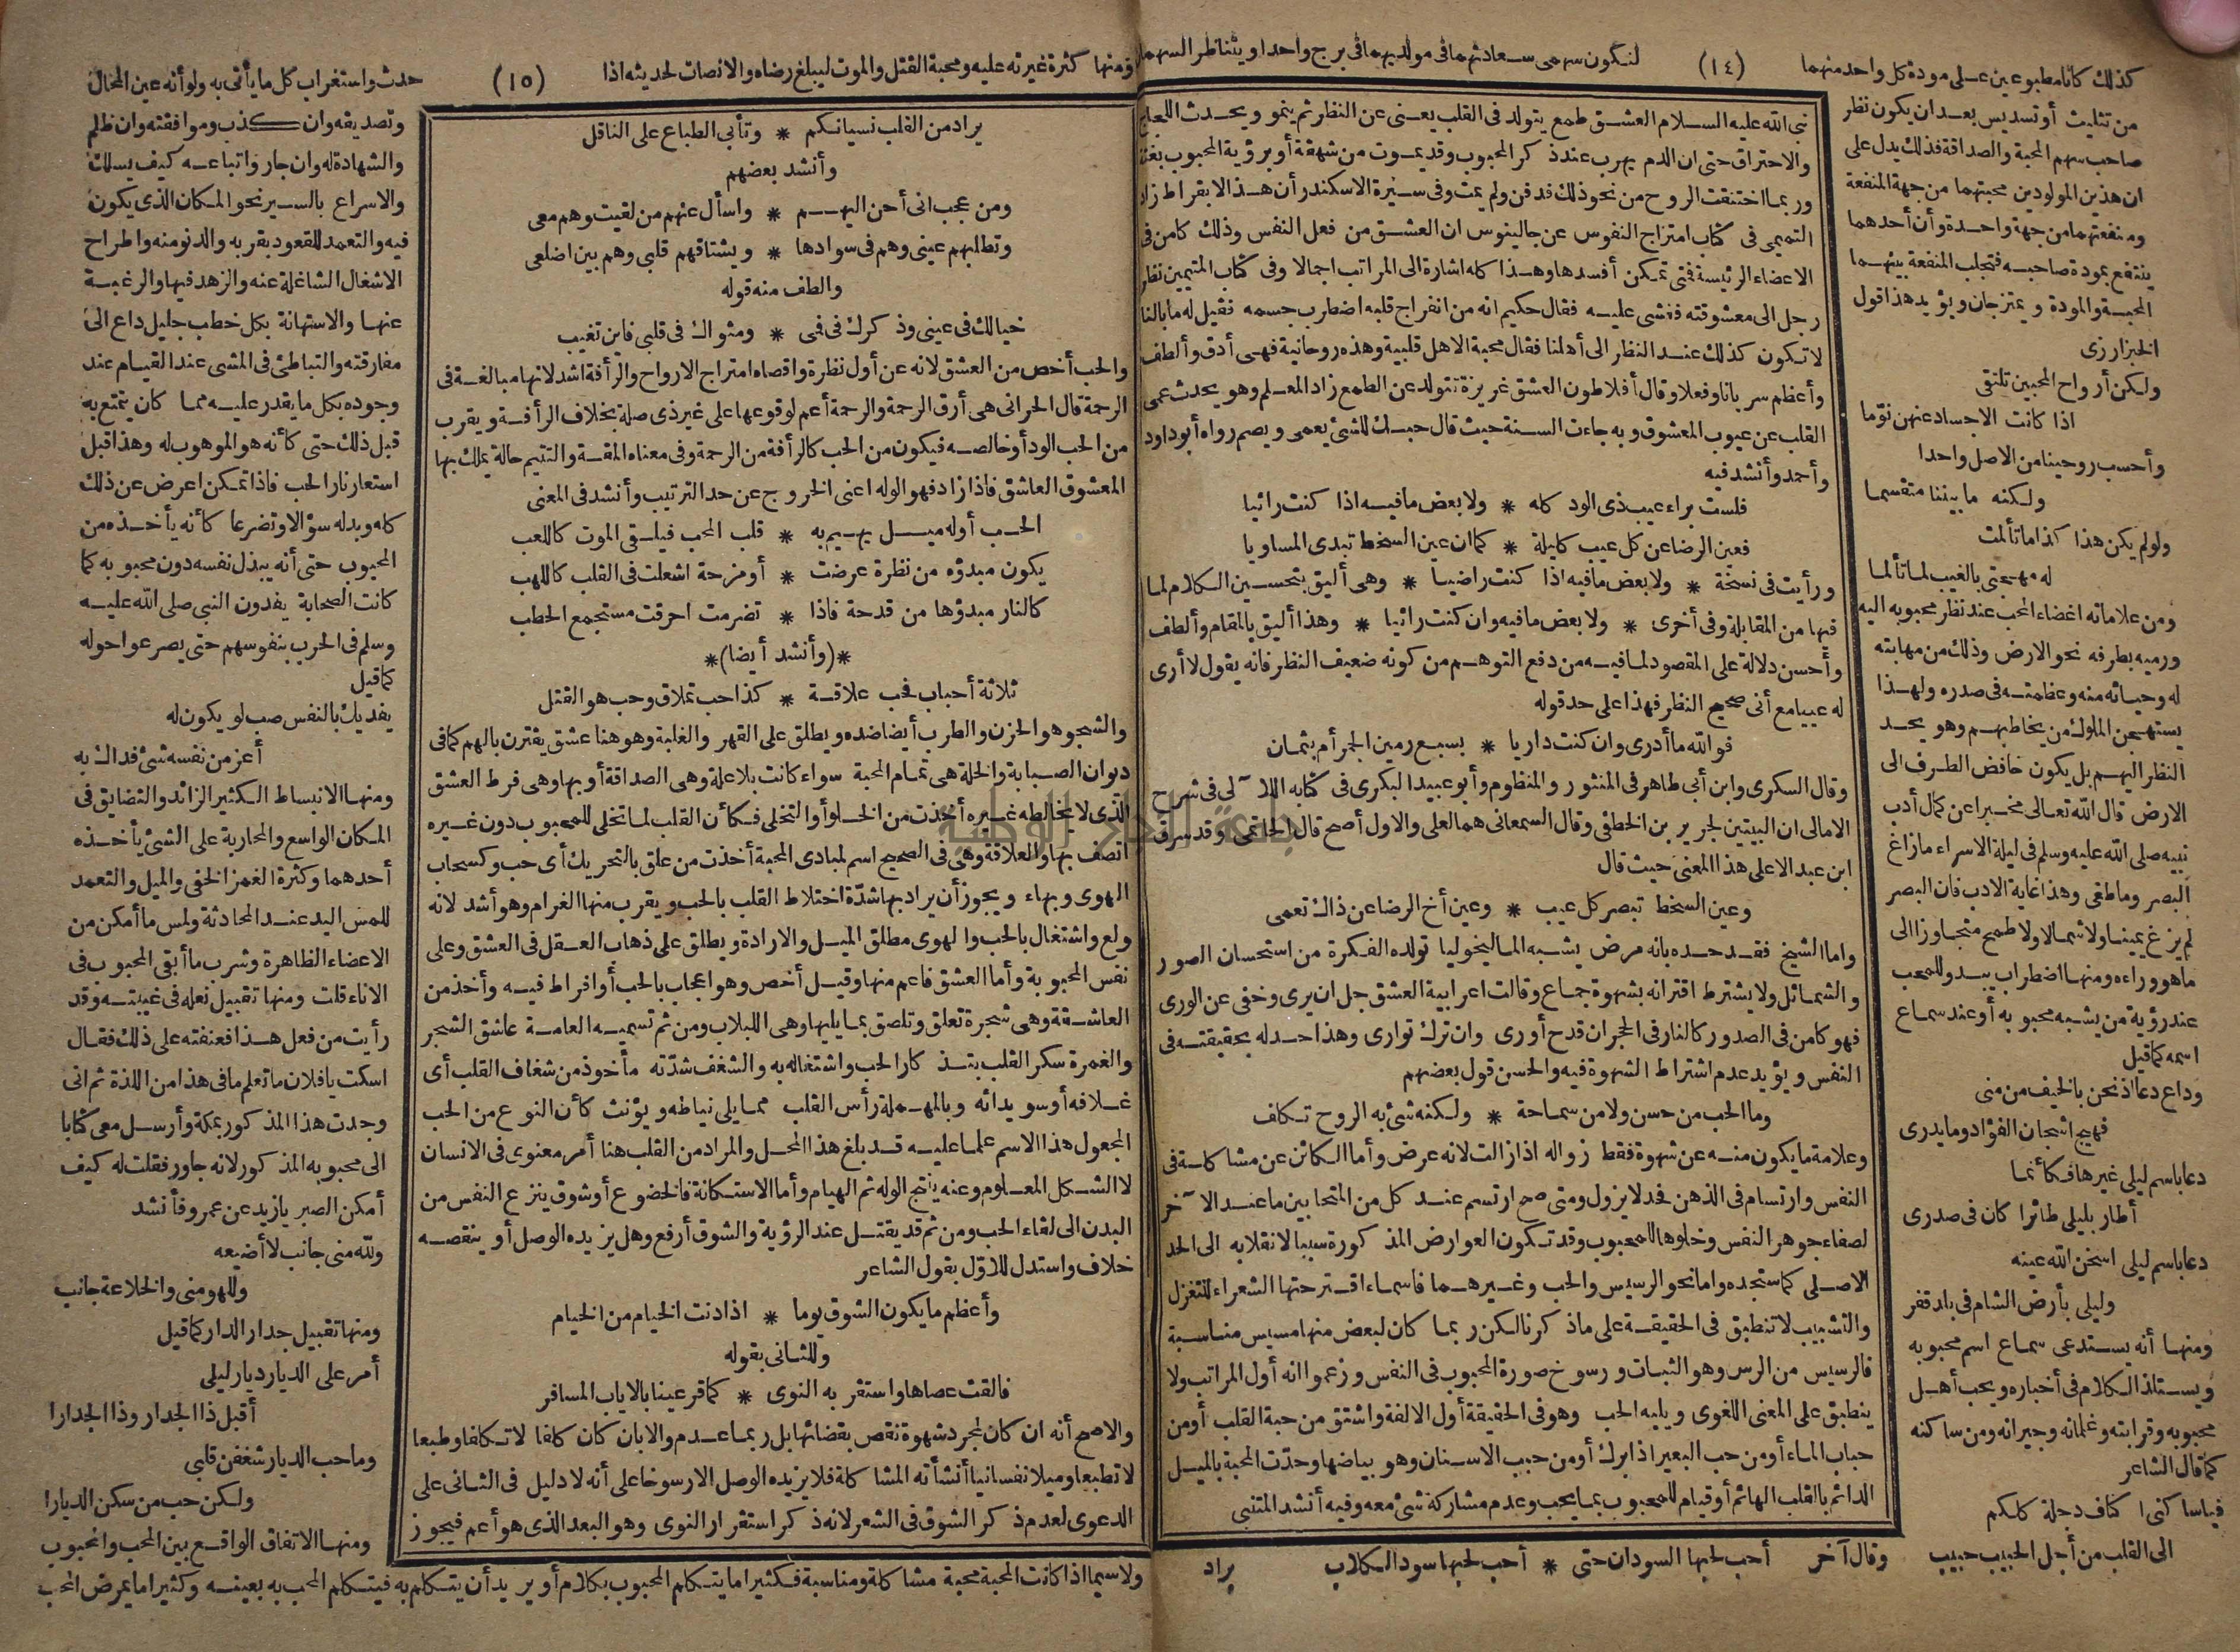 كذلك كانا مطبوعين على مودة كل واحد منهما (١٤) لتكون سهمى سعادتهما فى مولديهما فى برج واحد او يتناظر السهما
من تثليث أو تسديس بعد ان يكون نظر
صاحب سهم المحبة والصداقة فذلك يدل على
ان هذين المولودين محبتهما من جهة المنفعة
ومنفعتهما من جهة واحدة وأن أحدهما
ينتفع بمودة صاحبه فتجلب المنفعة بينهما
المحبة والمودة ويمتزجان ويؤيد هذا قول
الخبزارزى
ولكن أرواح المحبين تلتقى
اذا كانت الاجساد عنهن نوّما
وأحسب روحينا من الاصل واحدا
ولكنه ما بيننا متقسما
ولو لم يكن هذا كذا ما تألمت
له مهجتى بالغيب لما تألما
ومن علاماته اغضاء المحب عند نظر محبوبه اليه
ورميه بطرفه نحو الارض وذلك من مهابته
له وحيائه منه وعظمته فى صدره ولهذا
يستهجن الملوك من يخاطبهم وهو يحد
النظر اليهم بل يكون خافض الطرف الى
الارض قال الله تعالى مخبرا عن كمال أدب
نبيه صلى الله عليه وسلم فى ليلة الاسراء ما زاغ
البصر وما طغى وهذا غاية الادب فان البصر
لم يزغ يمينا ولا شمالا ولا طمح متجاوزا الى
ما هو وراءه ومنها اضطراب يبدو للمحب
عند رؤية من يشبه محبوبه أو عند سماع
اسمه كما قيل
وداع دعا اذ نحن بالخيف من منى
فهيج اشجان الفؤاد وما يدرى
دعا باسم ليلى غيرها فكأنما
أطار بليلى طائرا كان فى صدرى
دعا باسم ليلى اسخن الله عينه
وليلى بأرض الشام فى بلد قفر
ومنها أنه يستدعى سماع اسم محبوبه
ويستلذ الكلام فى أخباره ويحب أهل
محبوبه وقرابته وغلمانه وجيرانه ومن ساكنه
كما قال الشاعر
فياساكنى اكناف دجلة كلكم
الى القلب من أجل الحبيب حبيب وقال آخر أحب لحبها السودان حتى * أحب لحبها سود الكلاب
نبى الله عليه السلام العشق طمع يتولد فى القلب يعنى عن النظر ثم ينمو ويحدث اللجاج
والاحتراق حتى ان الدم يهرب عند ذكر المحبوب وقد يموت من شهقة أو برؤية المحبوب بغتة
وربما اختنقت الروح من نحو ذلك فدفن ولم يمت وفى سيرة الاسكندر أن هذا لابقراط زاد
التميمى فى كتاب امتزاج النفوس عن جالينوس ان العشق من فعل النفس وذلك كامن فى
الاعضاء الرئيسة فتى تمكن أفسدها وهذا كله اشارة الى المراتب اجمالا وفى كتاب المتيمين نظر
رجل الى معشوقته فغشى عليه فقال حكيم انه من انفراج قلبه اضطرب جسمه فقيل له ما بالنا
لا تكون كذلك عند النظر الى أهلنا فقال محبة الاهل قلبية وهذه روحانية فهى أدق وألطف
وأعظم سريانا وفعلا وقال أفلاطون العشق غريزة تتولد عن الطمع زاد المعلم وهو يحدث عمى
القلب عن عيوب المعشوق وبه جاءت السنة حيث قال حبك للشئ يعمى ويصم رواه أبو داود
وأحمد وأنشد فيه
فلست براء عيب ذى الود كله * ولا بعض ما فيه اذا كنت رائيا
فعين الرضا عن كل عيب كليلة * كما ان عين السخط تبدى المساويا
ورأيت فى نسخة * ولا بعض ما فيه اذا كنت راضيا * وهى أليق بتحسين الكلام لما
فيها من المقابلة وفى أخرى * ولا بعض ما فيه وان كنت رائيا * وهذا أليق بالمقام وألطف
وأحسن دلالة على المقصود لما فيه من دفع التوهم من كونه ضعيف النظر فانه يقول لا أرى
له عيبا مع أنى صحيح النظر فهذا على حد قوله
فو الله ما أدرى وان كنت داريا * بسبع رمين الجمر أم بثمان
وقال السكرى وابن أبى طاهر فى المنثور والمنظوم وأبو عبيد البكرى فى كتابه اللآلى فى شرح
الامالى ان البيتين لجرير بن الخطفى وقال السمعانى هما لعلى والاول أصح قال الحاتمى وقد سرق
ابن عبد الاعلى هذا المعنى حيث قال
وعين السخط تبصر كل عيب * وعين أخ الرضا عن ذاك تعمى
واما الشيخ فقد حده بانه مرض يشبه الماليخوليا تولده الفكرة من استحسان الصور
والشمائل ولا يشترط اقترانه بشهوة جماع وقالت اعرابية العشق جل ان يرى وخفى عن الورى
فهو كامن فى الصدور كالنار فى الحجر ان قدح أورى وان ترك توارى وهذا حد له بحقيقته فى
النفس ويؤيد عدم اشتراط الشهوة فيه والحسن قول بعضهم
وما الحب من حسن ولا من سماحة * ولكنه شئ به الروح تكلف
وعلامة ما يكون منه عن شهوة فقط زواله اذا زالت لانه عرض وأما الكائن عن مشاكلة فى
النفس وارتسام فى الذهن فحد لا يزول ومتى صح ارتسم عند كل من المتحابين ما عند الآخر
لصفاء جوهر النفس وخلوها للمحبوب وقد تكون العوارض المذكورة سببا لانقلابه الى الحد
الاصلى كما ستجده واما نحو الرسيس والحب وغيرهما فاسماء اقترحتها الشعراء للتغزل
والتشبيب لا تنطبق فى الحقيقة على ما ذكرنا لكن ربما كان لبعض منها مسيس مناسبة
فالرسيس من الرس وهو الثبات ورسوخ صورة المحبوب فى النفس وزعموا انه أول المراتب ولا
ينطبق على المعنى اللغوى ويليه الحب وهو فى الحقيقة أول الالفة واشتق من حبة القلب أو من
حباب الماء أو من حب البعير اذا برك أو من حبب الاسنان وهو بياضها وحدّت المحبة بالميل
الدائم بالقلب الهائم أو قيام للمحبوب بما يحب وعدم مشاركة شئ معه وفيه أنشد المتنبى
يراد
ومنها كثرة غيرته عليه ومحبة القتل والموت ليبلغ رضاه والانصات لحديثه اذا (١٥) حدث واستغراب كل ما يأتى به ولو أنه عين المحال
يراد من القلب نسيانكم * وتأبى الطباع على الناقل
وأنشد بعضهم
ومن عجب انى أحن اليهم * واسأل عنهم من لقيت وهم معى
وتطلبهم عينى وهم فى سوادها * ويشتاقهم قلبى وهم بين اضلعى
والطف منه قوله
خيالك فى عينى وذكرك فى فمى * ومثواك فى قلبى فاين تغيب
والحب أخص من العشق لانه عن أول نظرة واقصاه امتزاج الارواح والرأفة اشد لانها مبالغة فى
الرحمة قال الحرانى هى أرق الرحمة والرحمة أعم لوقوعها على غير ذى صلة بخلاف الرأفة ويقرب
من الحب الود أو خالصه فيكون من الحب كالرأفة من الرحمة وفى معناه المقة والتتيم حالة يملك بها
المعشوق العاشق فاذا زاد فهو الوله اعنى الخروج عن حد الترتيب وأنشد فى المعنى
الحب أوله ميل يهيم به * قلب المحب فيلقى الموت كاللعب
يكون مبدؤه من نظرة عرضت * أو مزحة اشعلت فى القلب كاللهب
كالنار مبدؤها من قدحة فاذا * تضرمت احرقت مستجمع الحطب
*(وأنشد أيضا)*
ثلاثة أحباب فحب علاقة * كذا حب تملاق وحب هو القتل
والشجو هو الحزن والطرب أيضا ضده ويطلق على القهر والغلبة وهو هنا عشق يقترن بالهم كما فى
ديوان الصبابة والخلة هى تمام المحبة سواء كانت بلا علة وهى الصداقة أو بها وهى فرط العشق
الذى لا يخالطه غيره أخذت من الخلو أو التخلى فكأن القلب لما تخلى للمحبوب دون غيره
اتصف بها والعلاقة وهى فى الصحيح اسم لمبادى المحبة أخذت من علق بالتحريك أى حب وكسحاب
الهوى وبهاء ويجوز أن يراد بها شدّة اختلاط القلب بالحب ويقرب منها الغرام وهو أشد لانه
ولع واشتغال بالحب والهوى مطلق الميل والارادة ويطلق على ذهاب العقل فى العشق وعلى
نفس المحبوبة وأما العشق فاعم منها وقيل أخص وهو اعجاب بالحب أو افراط فيه وأخذ من
العاشقة وهى شجرة تعلق وتلصق بما يليها وهى اللبلاب ومن ثم تسميه العامة عاشق الشجر
والغمرة سكر القلب بتذكار الحب واشتغاله به والشغف شدّته مأخوذ من شغاف القلب أى
غلافه أو سويدائه وبالمهملة رأس القلب مما يلى نياطه ويؤنث كأن النوع من الحب
المجعول هذا الاسم علما عليه قد بلغ هذا المحل والمراد من القلب هنا أمر معنوى فى الانسان
لا الشكل المعلوم وعنه ينتج الوله ثم الهيام وأما الاستكانة فالخضوع أو شوق ينزع النفس من
البدن الى لقاء الحب ومن ثم قد يقتل عند الرؤية والشوق أرفع وهل يزيده الوصل أو ينقصه
خلاف واستدل للاوّل بقول الشاعر
وأعظم ما يكون الشوق يوما * اذا دنت الخيام من الخيام
وللثانى بقوله
فالقت عصاها واستقر به النوى * كما قر عينا بالاياب المسافر
والاصح أنه ان كان لمجرد شهوة نقص بقضائها بل ربما عدم والا بان كان كلفا لا تكلفا وطبعا
لا تطبعا وميلا نفسانيا أنشأته المشاكلة فلا يزيده الوصل الا رسوخا على أنه لا دليل فى الثانى على
الدعوى لعدم ذكر الشوق فى الشعر لانه ذكر استقرار النوى وهو البعد الذى هو أعم فيجوز
وتصديقه وان كذب وموافقته وان ظلم
والشهادة له وان جار واتباعه كيف يسلك
والاسراع بالسير نحو المكان الذى يكون
فيه والتعمد للقعود بقربه والدنو منه واطراح
الاشغال الشاغلة عنه والزهد فيها والرغبة
عنها والاستهانة بكل خطب جليل داع الى
مفارقته والتباطئ فى المشى عند القيام عند
وجوده بكل ما يقدر عليه مما كان يتمتع به
قبل ذلك حتى كأنه هو الموهوب له وهذا قبل
استعار نار الحب فاذا تمكن اعرض عن ذلك
كله وبدله سؤالا وتضرعا كأنه يأخذه من
المحبوب حتى أنه يبذل نفسه دون محبوبه كما
كانت الصحابة يفدون النبى صلى الله عليه
وسلم فى الحرب بنفوسهم حتى يصرعوا حوله
كما قيل
يفديك بالنفس صب لو يكون له
أعز من نفسه شئ فداك به
ومنها الانبساط الكثير الزائد والتضايق فى
المكان الواسع والمحاربة على الشئ يأخذه
أحدهما وكثرة الغمز الخفى والميل والتعمد
للمس اليد عند المحادثة ولمس ما أمكن من
الاعضاء الظاهرة وشرب ما أبقى المحبوب فى
الاناء قلت ومنها تقبيل نعله فى غيبته وقد
رأيت من فعل هذا فعنفته على ذلك فقال
اسكت يا فلان ما تعلم ما فى هذا من اللذة ثم انى
وجدت هذا المذكور بمكة وأرسل معى كتابا
الى محبوبه المذكور لانه جاور فقلت له كيف
أمكن الصبر يا زيد عن عمرو فأنشد
ولله منى جانب لا أضيعه
وللهو منى والخلاعة جانب
ومنها تقبيل جدار الدار كما قيل
أمر على الديار ديار ليلى
أقبل ذا الجدار وذا الجدارا
وما حب الديار شغفن قلبى
ولكن حب من سكن الديارا
ومنها الاتفاق الواقع بين المحب والمحبوب
ولا سيما اذا كانت المحبة محبة مشاكلة ومناسبة فكثيرا ما يتكلم المحبوب بكلام أو يريد أن يتكلم به فيتكلم المحب به بعينه وكثيرا ما يمرض المحب
جامعة النجاح الوطنية